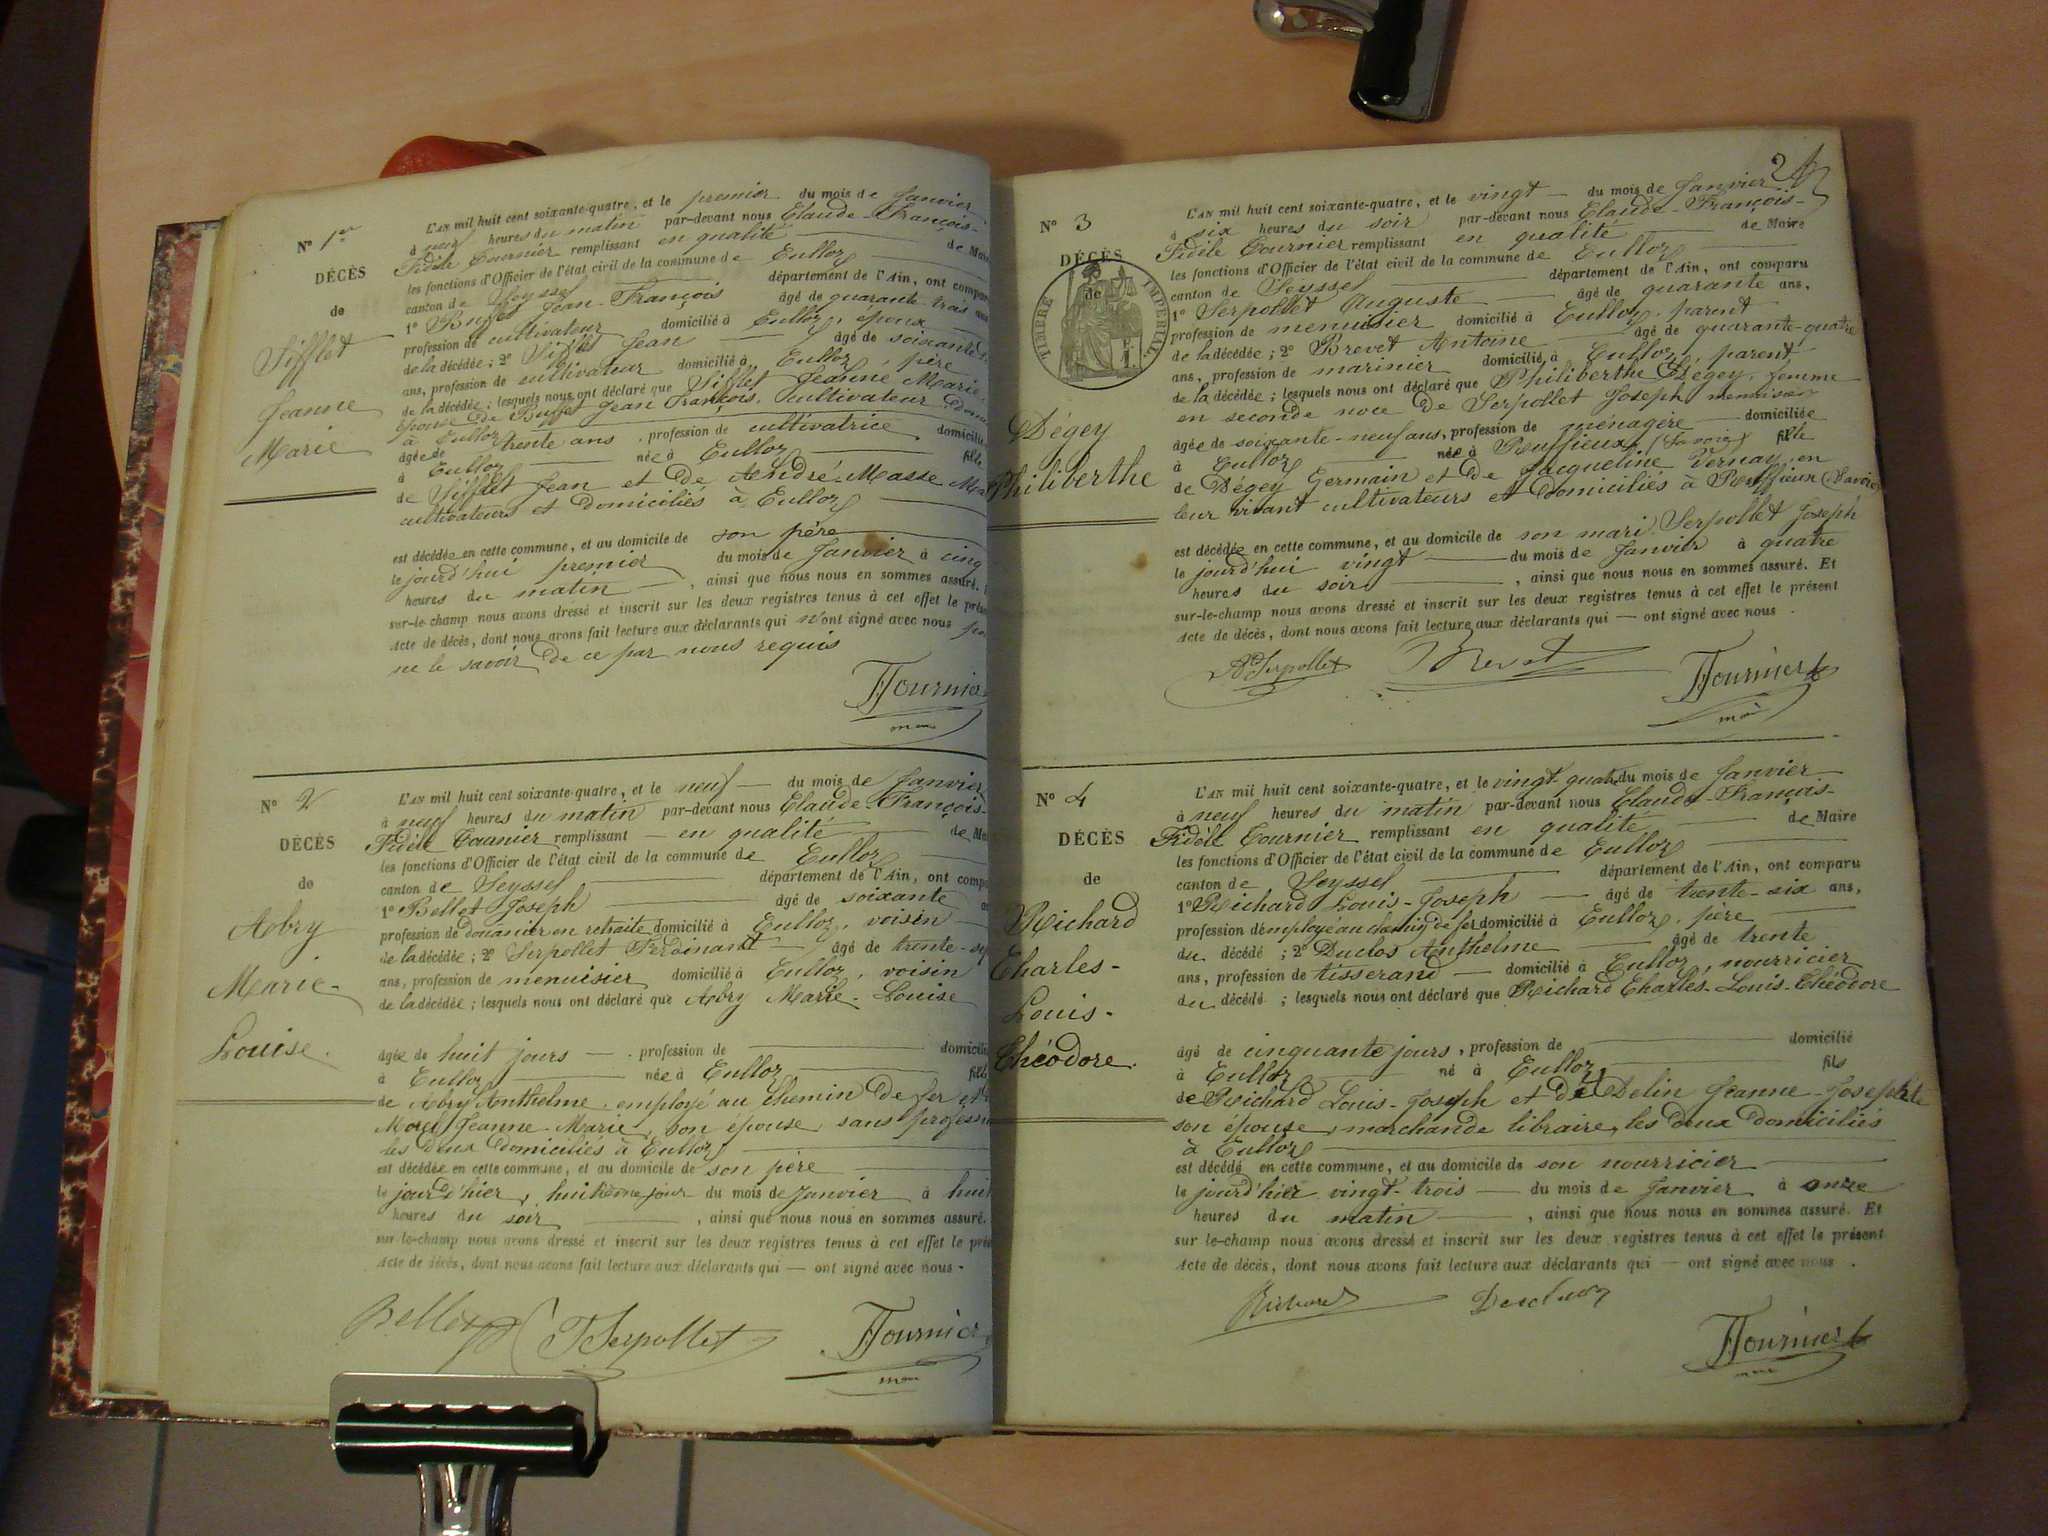 N° 1er
DÉCÈS
de
Sifflet
Jeanne
Marie
L'AN mil huit cent soixante-quatre, et le premier du mois de Janvier
à neuf heures du matin par-devant nous Claude-François-
Fidèle Fournier remplissant en qualité de Maire
les fonctions d'Officier de l'état civil de la commune de Culloz
canton de Seyssel département de l'Ain, ont comparu
1° Buffet Jean-François âgé de quarante-trois ans
profession de cultivateur domicilié à Culloz, époux
de la décédée; 2° Sifflet Jean âgé de soixante
ans, profession de cultivateur domicilié à Culloz, père
de la décédée; lesquels nous ont déclaré que Sifflet Jeanne Marie,
épouse de Buffet Jean François, cultivateur
à Culloz
âgée de trente ans, profession de cultivatrice, domiciliée
à Culloz née à Culloz fille
de Sifflet Jean et de André-Masse
cultivateurs et domiciliés à Culloz
est décédée en cette commune, et au domicile de son père
le jourd'hui premier du mois de Janvier à cinq
heures du matin, ainsi que nous nous en sommes assuré.
sur-le-champ nous avons dressé et inscrit sur les deux registres tenus à cet effet le
acte de décès, dont nous avons fait lecture aux déclarants qui n'ont signé avec nous
ne le savoir de ce par nous requis
FFournier
N° 2
DÉCÈS
de
Abry
Marie-
Louise.
L'AN mil huit cent soixante-quatre, et le neuf du mois de Janvier
à neuf heures du matin par-devant nous Claude-François-
Fidèle Fournier remplissant en qualité de
les fonctions d'Officier de l'état civil de la commune de Culloz
canton de Seyssel département de l'Ain, ont
1° Bellet Joseph âgé de soixante
profession de douanier en retraite domicilié à Culloz, voisin
de la décédée; 2° Serpollet Ferdinand âgé de trente-
ans, profession de menuisier domicilié à Culloz, voisin
de la décédée; lesquels nous ont déclaré que Abry Marie-Louise
âgée de huit jours, profession de
à Culloz née à Culloz
de Abry Anthelme, employé au chemin de fer et
Jeanne-Marie, son épouse, sans
les deux domiciliés à Culloz
est décédée en cette commune, et au domicile de son père
le jourd'hier, huitième jour du mois de Janvier à
heures du soir, ainsi que nous nous en sommes assuré.
sur-le-champ nous avons dressé et inscrit sur les deux registres tenus à cet effet le
acte de décès, dont nous avons fait lecture aux déclarants qui — ont signé avec nous.
Bellet FSerpollet FFournier
24
N° 3
DÉCÈS
de
TIMBRE IMPÉRIAL
Dégey
Philiberthe
L'AN mil huit cent soixante-quatre, et le vingt du mois de Janvier
à six heures du soir par-devant nous Claude-François-
Fidèle Fournier remplissant en qualité de Maire
les fonctions d'Officier de l'état civil de la commune de Culloz
canton de Seyssel département de l'Ain, ont comparu
1° Serpollet Auguste âgé de quarante ans,
profession de menuisier domicilié à Culloz, parent
de la décédée; 2° Brevet Antoine âgé de quarante-quatre
ans, profession de marinier domicilié à Culloz, parent
de la décédée; lesquels nous ont déclaré que Philiberthe Dégey, femme
en seconde noce de Serpollet Joseph menuisier
âgée de soixante-neuf ans, profession de ménagère domiciliée
à Culloz née à Ruffieux (Savoie) fille
de Dégey Germain et de Jacqueline Vernay, en
leur vivant cultivateurs et domiciliés à Ruffieux (Savoie)
est décédée en cette commune, et au domicile de son mari Serpollet Joseph
le jourd'hui vingt du mois de Janvier à quatre
heures du soir, ainsi que nous nous en sommes assuré. Et
sur-le-champ nous avons dressé et inscrit sur les deux registres tenus à cet effet le présent
acte de décès, dont nous avons fait lecture aux déclarants qui — ont signé avec nous.
ASerpollet Brevet FFournier
N° 4
DÉCÈS
de
Richard
Charles-
Louis-
Théodore.
L'AN mil huit cent soixante-quatre, et le vingt-quatre du mois de Janvier
à neuf heures du matin par-devant nous Claude-François-
Fidèle Fournier remplissant en qualité de Maire
les fonctions d'Officier de l'état civil de la commune de Culloz
canton de Seyssel département de l'Ain, ont comparu
1° Richard Louis-Joseph âgé de trente-six ans,
profession d'employé au chemin de fer domicilié à Culloz, père
du décédé; 2° Duclos Anthelme âgé de trente
ans, profession de tisserand domicilié à Culloz, nourricier
du décédé; lesquels nous ont déclaré que Richard Charles-Louis-Théodore
âgé de cinquante jours, profession de domicilié
à Culloz né à Culloz fils
de Richard Louis-Joseph et de Delin Jeanne-Josephte
son épouse, marchande libraire, les deux domiciliés
à Culloz
est décédé en cette commune, et au domicile de son nourricier
le jourd'hier vingt-trois du mois de Janvier à onze
heures du matin, ainsi que nous nous en sommes assuré. Et
sur-le-champ nous avons dressé et inscrit sur les deux registres tenus à cet effet le présent
acte de décès, dont nous avons fait lecture aux déclarants qui — ont signé avec nous.
Richard FFournier